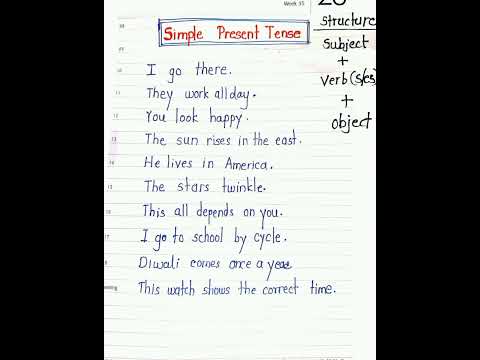 Week 35
Simple Present Tense
structure
Subject
+
Verb (s/es)
+
object
I go there.
They work all day.
You look happy.
The sun rises in the east.
He lives in America.
The stars twinkle.
This all depends on you.
I go to school by cycle.
Diwali comes once a year
This watch shows the correct time.